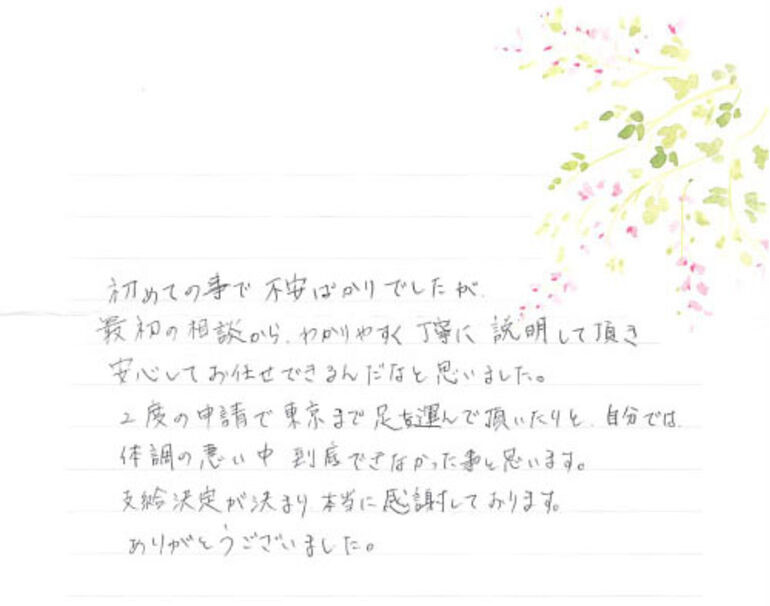 初めての事で不安ばかりでしたが、
最初の相談から、わかりやすく丁寧に説明して頂き
安心してお任せできるんだなと思いました。
2度の申請で東京まで足を運んで頂いたりと、自分では、
体調の悪い中到底できなかった事と思います。
支給決定が決まり本当に感謝しております。
ありがとうございました。